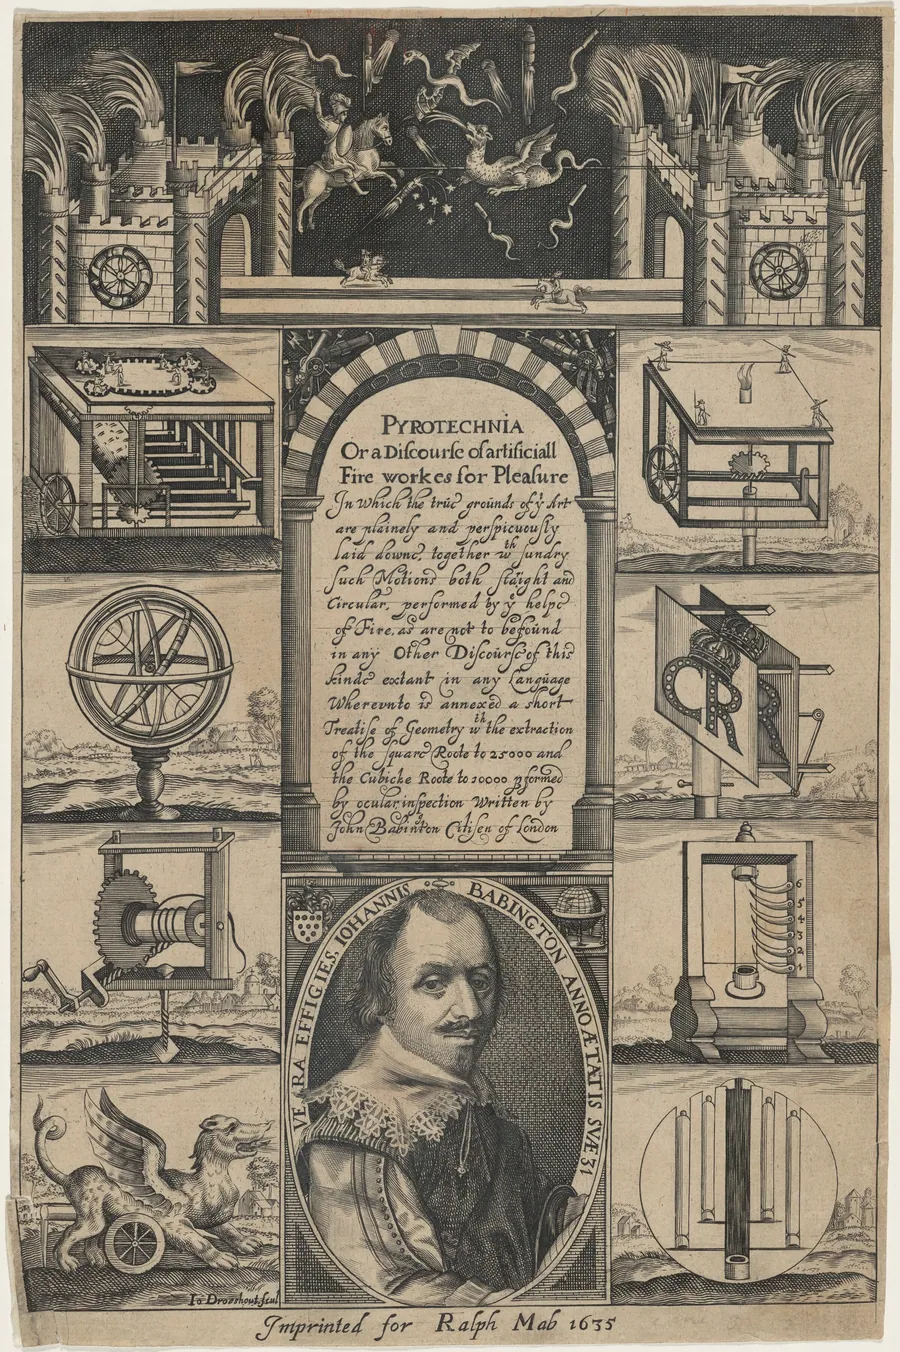 PYROTECHNIA
Or a Discourse of artificiall
Fire workes for Pleasure
In Which the true grounds of yͤ Art
are plainely and perspicuously
laid downe, together wᵗʰ sundry
such Motions both staight and
Circular, performed by yͤ helpe
of Fire, as are not to be found
in any Other Discourse of this
kinde extant in any Language
Wherevnto is annexed a short
Treatise of Geometry wᵗʰ the extraction
of the square Roote to 25000 and
the Cubicke Roote to 10000 ꝑformed
by ocular inspection Written by
John Babington Citisen of London
CR
6
5
4
3
2
1
VERA EFFIGIES, IOHANNIS BABINGTON ANNO ÆTATIS SVÆ 31
Io Droeshout scul
Imprinted for Ralph Mab 1635